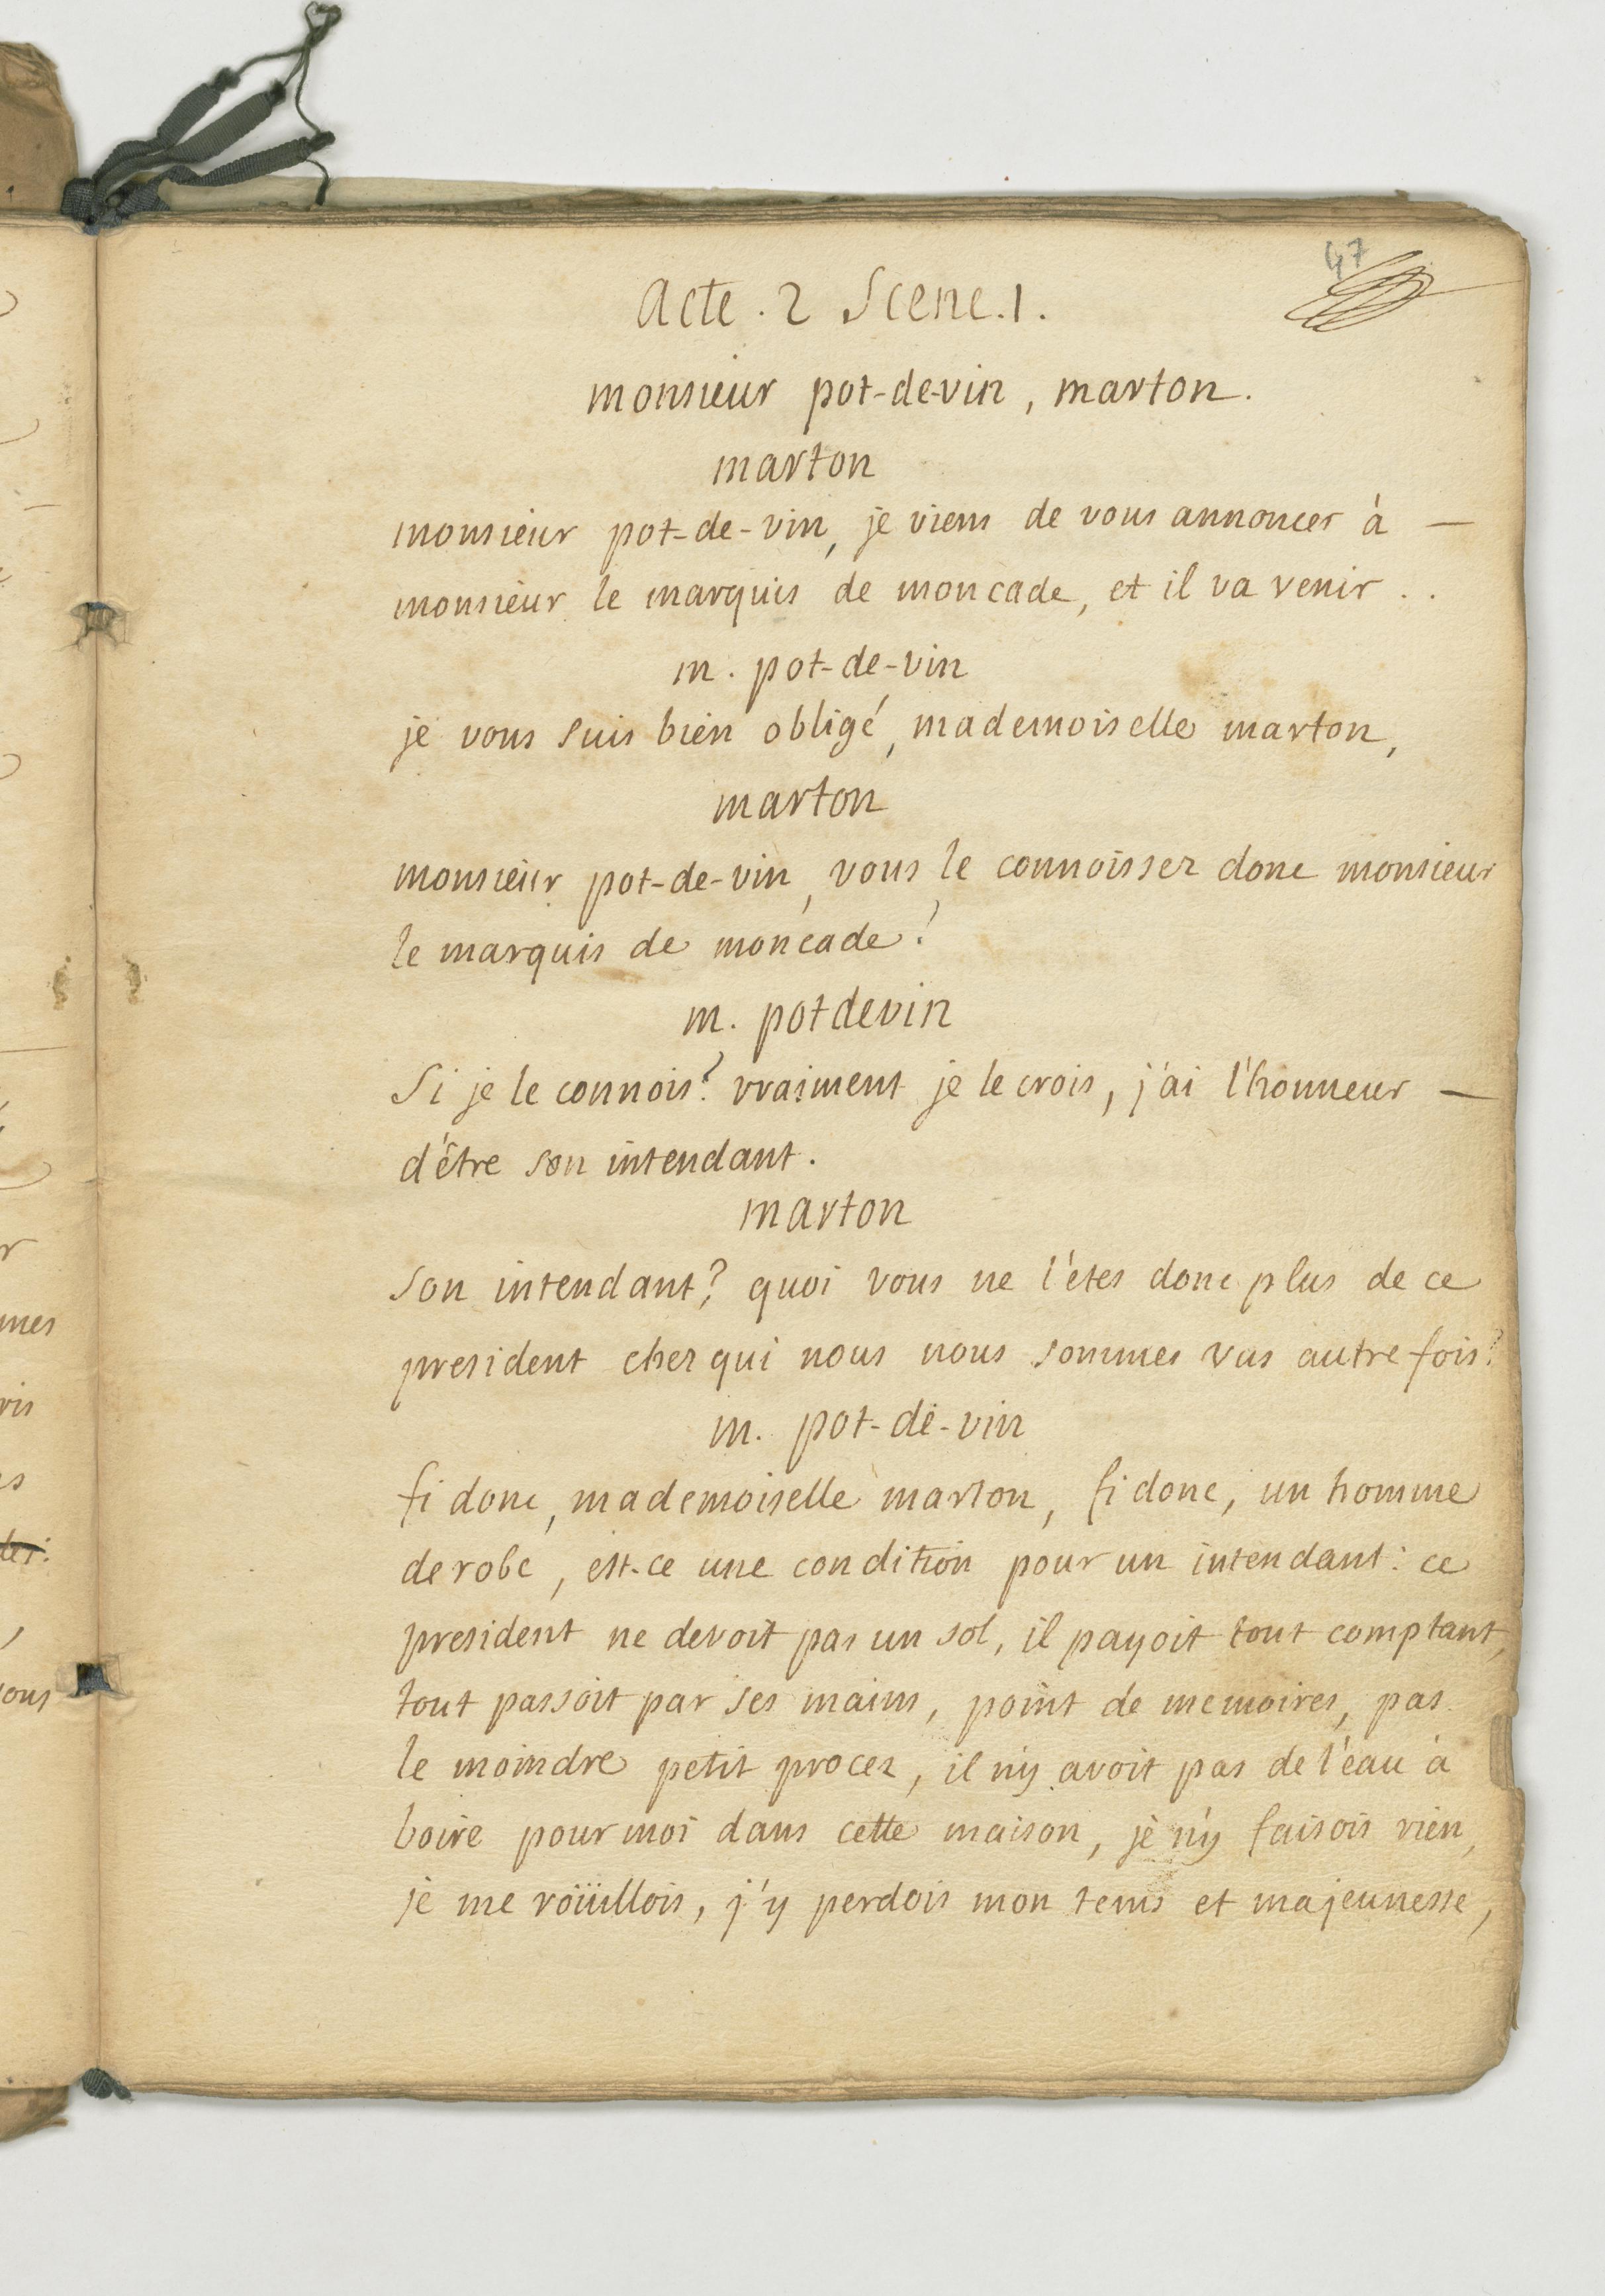 47
Acte . 2 Scene . 1 .
monsieur pot-de-vin, marton .
marton
monsieur pot-de-vin, je viens de vous annoncer à —
monsieur le marquis de moncade, et il va venir . .
m . pot-de-vin
je vous suis bien obligé, mademoiselle marton,
marton
monsieur pot-de-vin, vous le connoissez donc monsieur
le marquis de moncade ?
m . potdevin
Si je le connois ? vraiment je le crois, j'ai l'honneur —
d'être son intendant .
marton
Son intendant ? quoi vous ne l'étes donc plus de ce
president chez qui nous nous sommes vus autre fois ?
m . pot-de-vin
fi donc, mademoiselle marton, fi donc, un homme
de robe, est-ce une condition pour un intendant : ce
president ne devoit pas un sol, il payoit tout comptant,
tout passoit par ses mains, point de memoires, pas
le moindre petit procez, il n'y avoit pas de l'eau à
boire pour moi dans cette maison, je n'y faisois rien,
je me roüillois, j'y perdois mon tems et ma jeunesse,
mes
ris
s
der .
ous